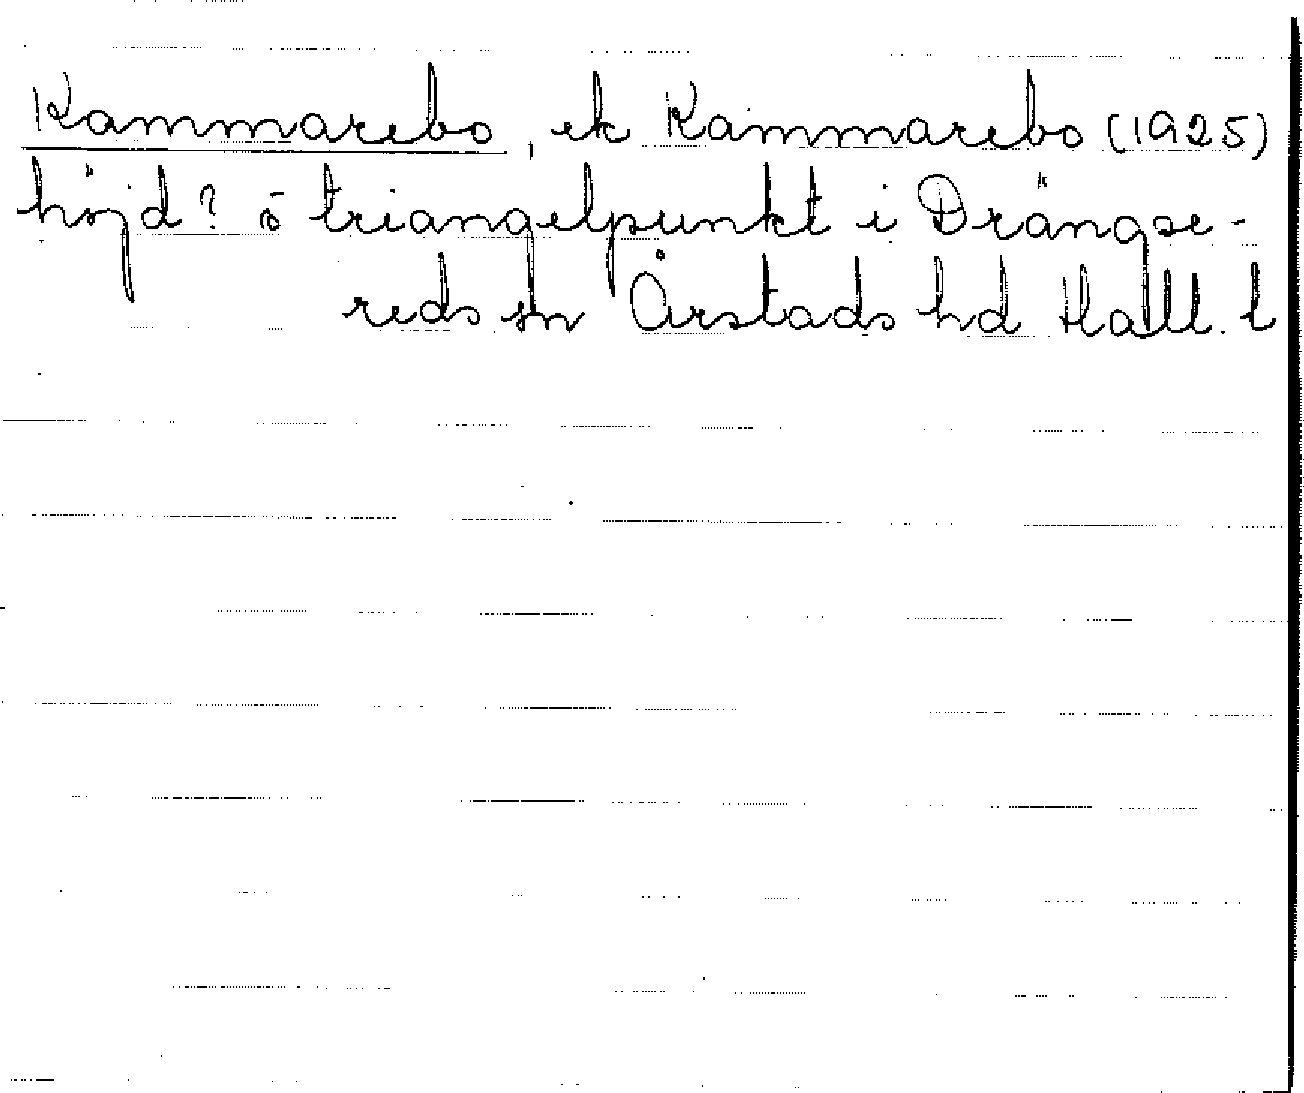 Kammarebo, ek Kammarebo (1925)
höjd? o triangelpunkt i Drängse-
reds sn Årstads hd Hall. l